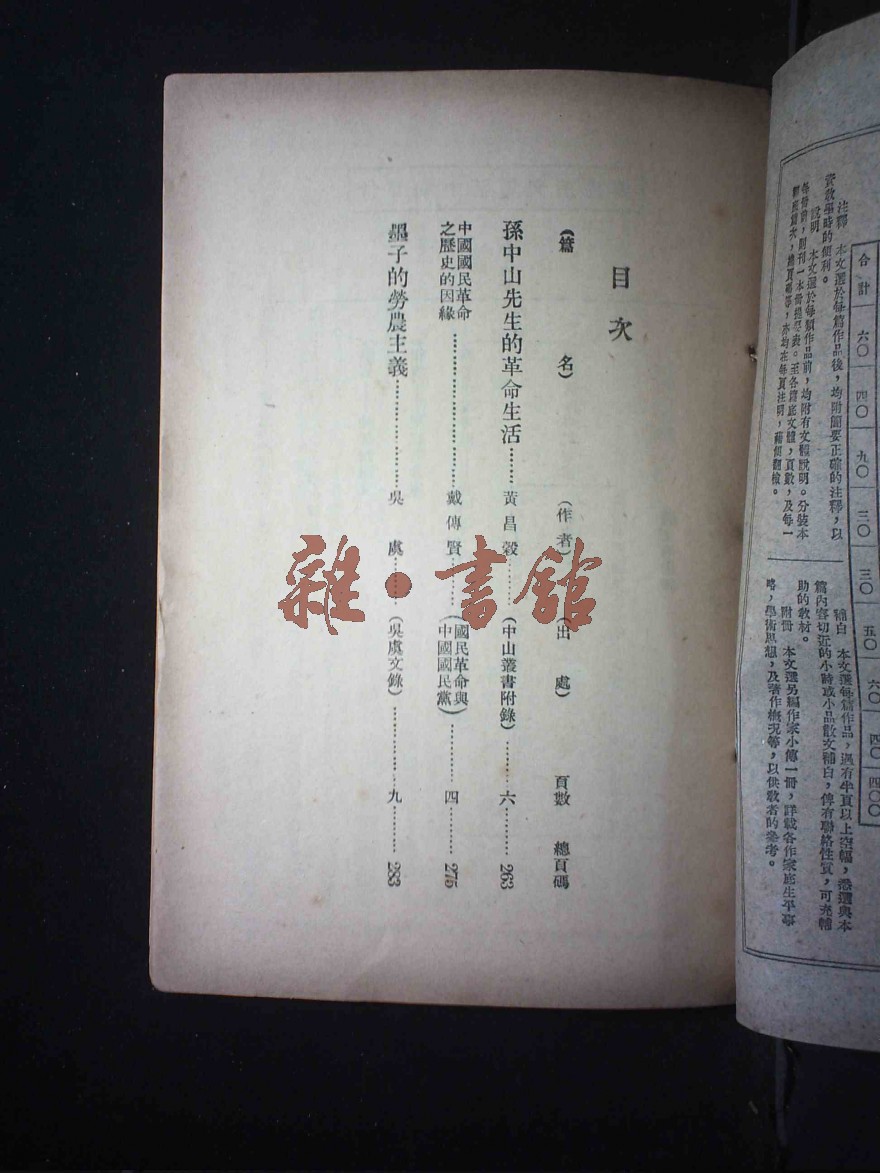 注釋　本文選於每篇作品後，均附簡要正確的注釋，以
資教學時的便利。
說明　本文選於每類作品前，均附有文體說明。分裝本
合計　六〇　四〇　九〇　三〇　三〇　五〇　六〇　四〇　四〇〇
補白　本文選每篇作品，遇有半頁以上空幅，悉選與本
篇內容切近的小詩或小品散文補白，俾有聯絡性質，可充輔
助的教材。
附冊　本文選另編作家小傳一冊，詳載各作家底生平事
略，學術思想，及著作概況等，以供教者的參考。
目次
（篇名）　（作者）　（出處）　頁數　總頁碼
孫中山先生的革命生活……黃昌穀……（中山叢書附錄）……六……263
中國國民革命
之歷史的因緣……戴傳賢……（國民革命與
中國國民黨）……四……275
墨子的勞農主義……吳虞……（吳虞文錄）……九……283
雜·書館